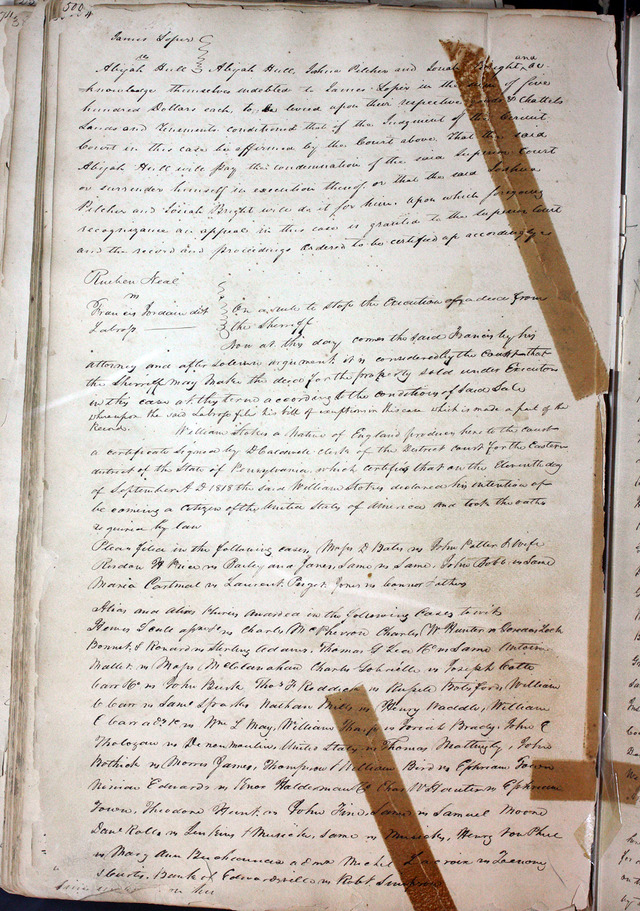 500
James Loper
vs
Abijah Hull Abijah Hull, Joshua Pilcher and Josiah Bright, and ac-
knowledge themselves indebted to James Loper in the sum of five
hundred Dollars each to be levied upon their respective Goods & Chattels
Lands and Tenements conditioned that if the Judgment of the Circuit
Court in this case be affirmed by the Court above, That the said
Abijah Hull will pay the condemnation of the said Superior Court
or surrender himself in execution thereof or that the said Joshua
Pilcher and Josiah Bright will do it for him, upon which foregoing
recognizance an appeal in this case is granted to the Superior Court
and the record and proceedings ordered to be certified up accordingly
Rueben Neal
vs
Francis Jordain dit On a rule to stop the Execution of a deed from
Labrop the Sheriff
Now at this day comes the said Francis by his
attorney and after solemn argument it is considered by the Court that
the Sheriff may make the deed for the property sold under Execution
in this case at this term according to the conditions of said Sale
whereupon the said Labrop files his bill of exceptions in this case which is made a part of the
Record.
William Stokes a Native of England produces here to the court
a certificate signed by D Caldwell clerk of the District court for the Eastern
district of the State of Pennsylvania which certifies that on the Eleventh day
of September A D 1818 the said William Stokes declared his intention of
becoming a citizen of the United States of America and took the oaths
required by law
Pleas filed in the following cases, Maps D Bates vs John Potter & wife
Risdon H Price vs Bailey and Janes, Same vs Same. John Bobb vs Same
Maria Same vs Laurent
Alias and alias Pluries awarded in the following Cases towit
Hewes Scull vs Charles McPherson Charles W Hunter vs
Bonnet & Renard vs Sterling Adams, Thomas G Lea & Co vs Same Antoine
Mallet vs McClanahan Charles vs Joseph
Carr & Co vs John Burk Thos F Reddick vs Russell Botsford, William
C Carr vs Same Nathan Mills vs Henry Waddle, William
C Carr vs Wm L May, William Tharp vs Josiah Brady, John C
vs Demonmoulin, United States vs Thomas Mattingly, John
vs Morris James, Thompson & William Bird vs Ephraim Town
Ninian Edwards vs Knox Halderman & Co Chas W Hunter vs Ephraim
Town, Theodore Hunt vs John Fine, Same vs Samuel Moore
Danl Ralls vs Jenkins & Musick, Same vs Musicks, Henry Von Phul
vs Mary Ann Michel Lacroix vs
Bank of Edwardsville vs Robt Simpson